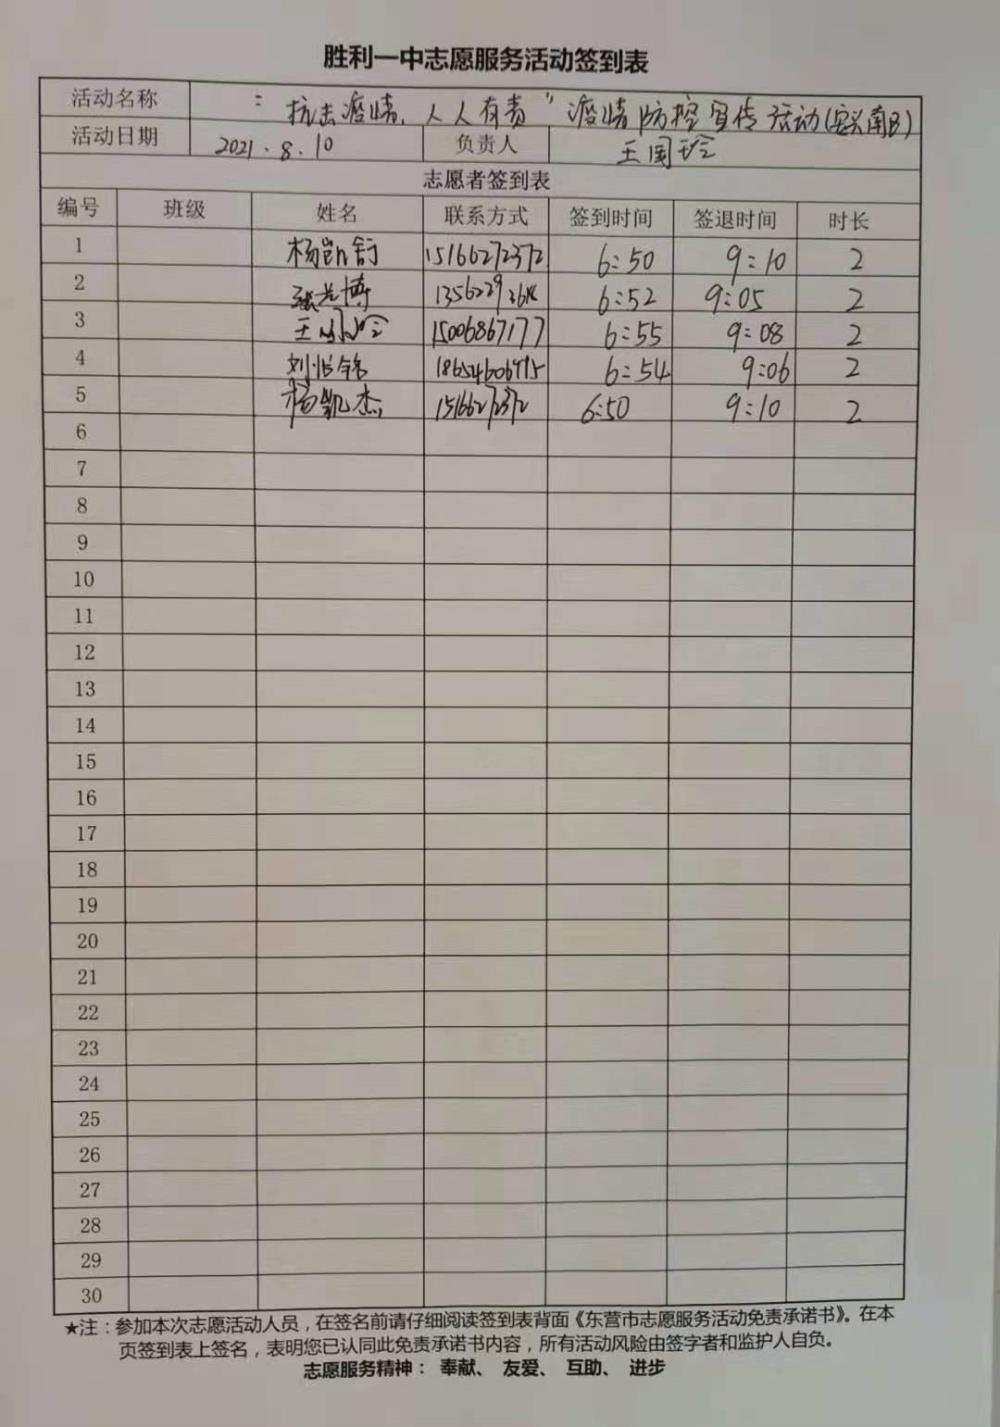 胜利一中志愿服务活动签到表
活动名称 “抗击疫情，人人有责”疫情防控宣传活动(安兴南区)
活动日期 2021.8.10 负责人 王国玲
志愿者签到表
编号 班级 姓名 联系方式 签到时间 签退时间 时长
1 杨凯舒 15166272372 6:50 9:10 2
2 博 6:52 9:05 2
3 王 15006867177 6:55 9:08 2
4 刘 6:54 9:06 2
5 杨凯杰 15166272372 6:50 9:10 2
6
7
8
9
10
11
12
13
14
15
16
17
18
19
20
21
22
23
24
25
26
27
28
29
30
★注：参加本次志愿活动人员，在签名前请仔细阅读签到表背面《东营市志愿服务活动免责承诺书》。在本
页签到表上签名，表明您已认同此免责承诺书内容，所有活动风险由签字者和监护人自负。
志愿服务精神： 奉献、 友爱、 互助、 进步